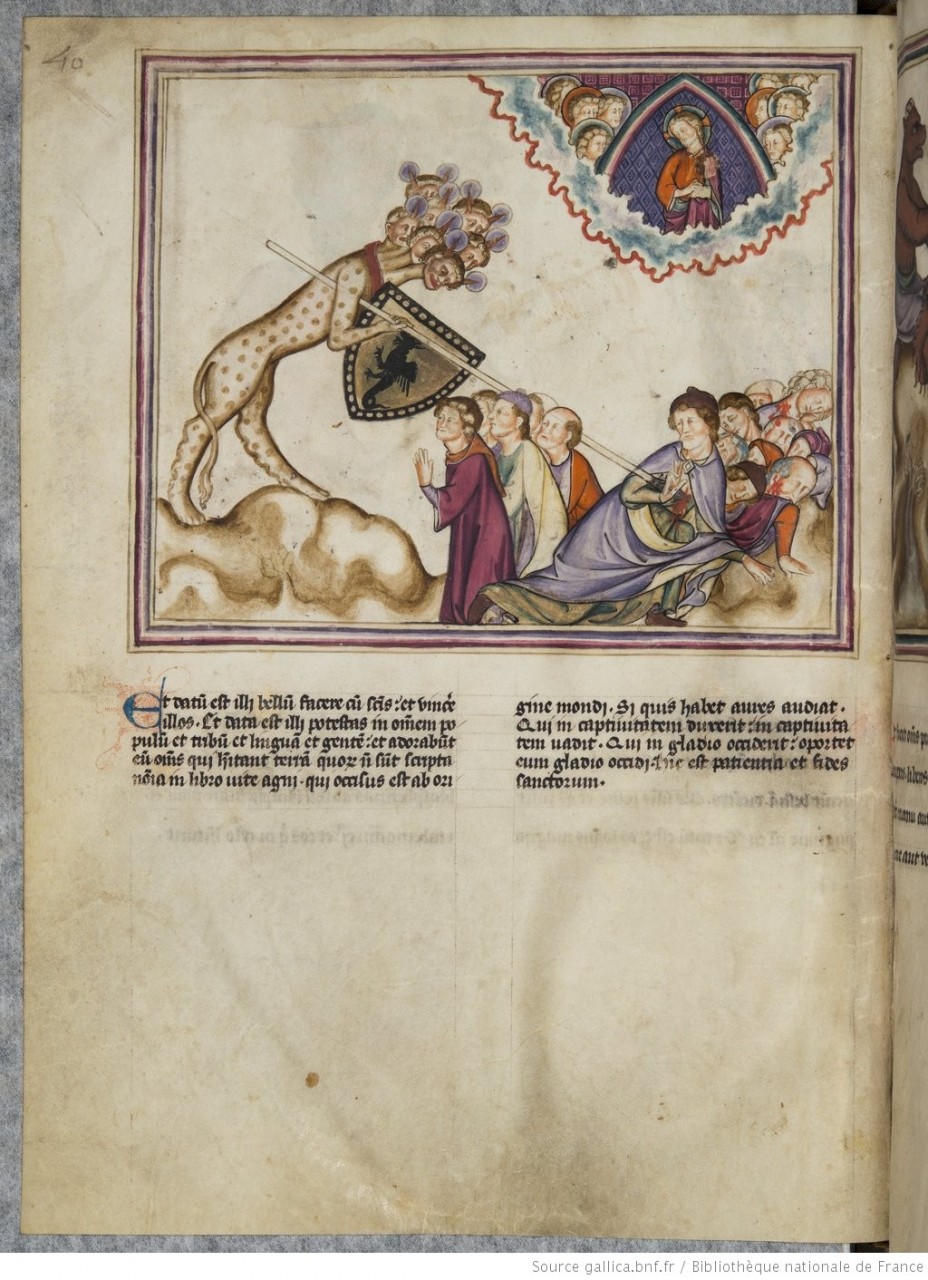 40
Et datū est illi bellū facere cū sc̄is : et vincē
illos. Et data est illi potestas in om̄em po
pulū et tribū et linguā et gentē : et adorabūt
eū om̄s qui hītant terrā quoꝝ n̄ sūt scripta
nōīa in libro vite agni. qui occisus est ab ori
gine mondi. Si quis habet aures audiat.
Qui in captiuitatem duxerit : in captiuita
tem uadit. Qui in gladio occiderit : oportet
eum gladio occidi. est patientia et fides
sanctorum.
Source gallica.bnf.fr / Bibliothèque nationale de France